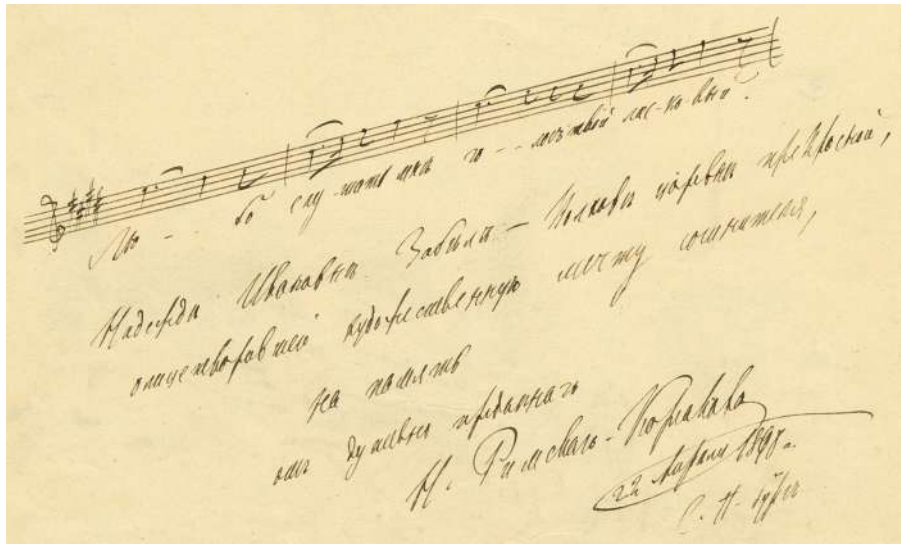 Лю - бо слу-шать мнѣ го - - лосъ твой лас-ко-вый.
Надеждѣ Ивановнѣ Забѣлѣ — Волховѣ царевнѣ прекрасной,
олицетворившей художественную мечту сочинителя,
на память
отъ душевно преданнаго
Н. Римскаго-Корсакова
22 Апрѣля 1898 г.